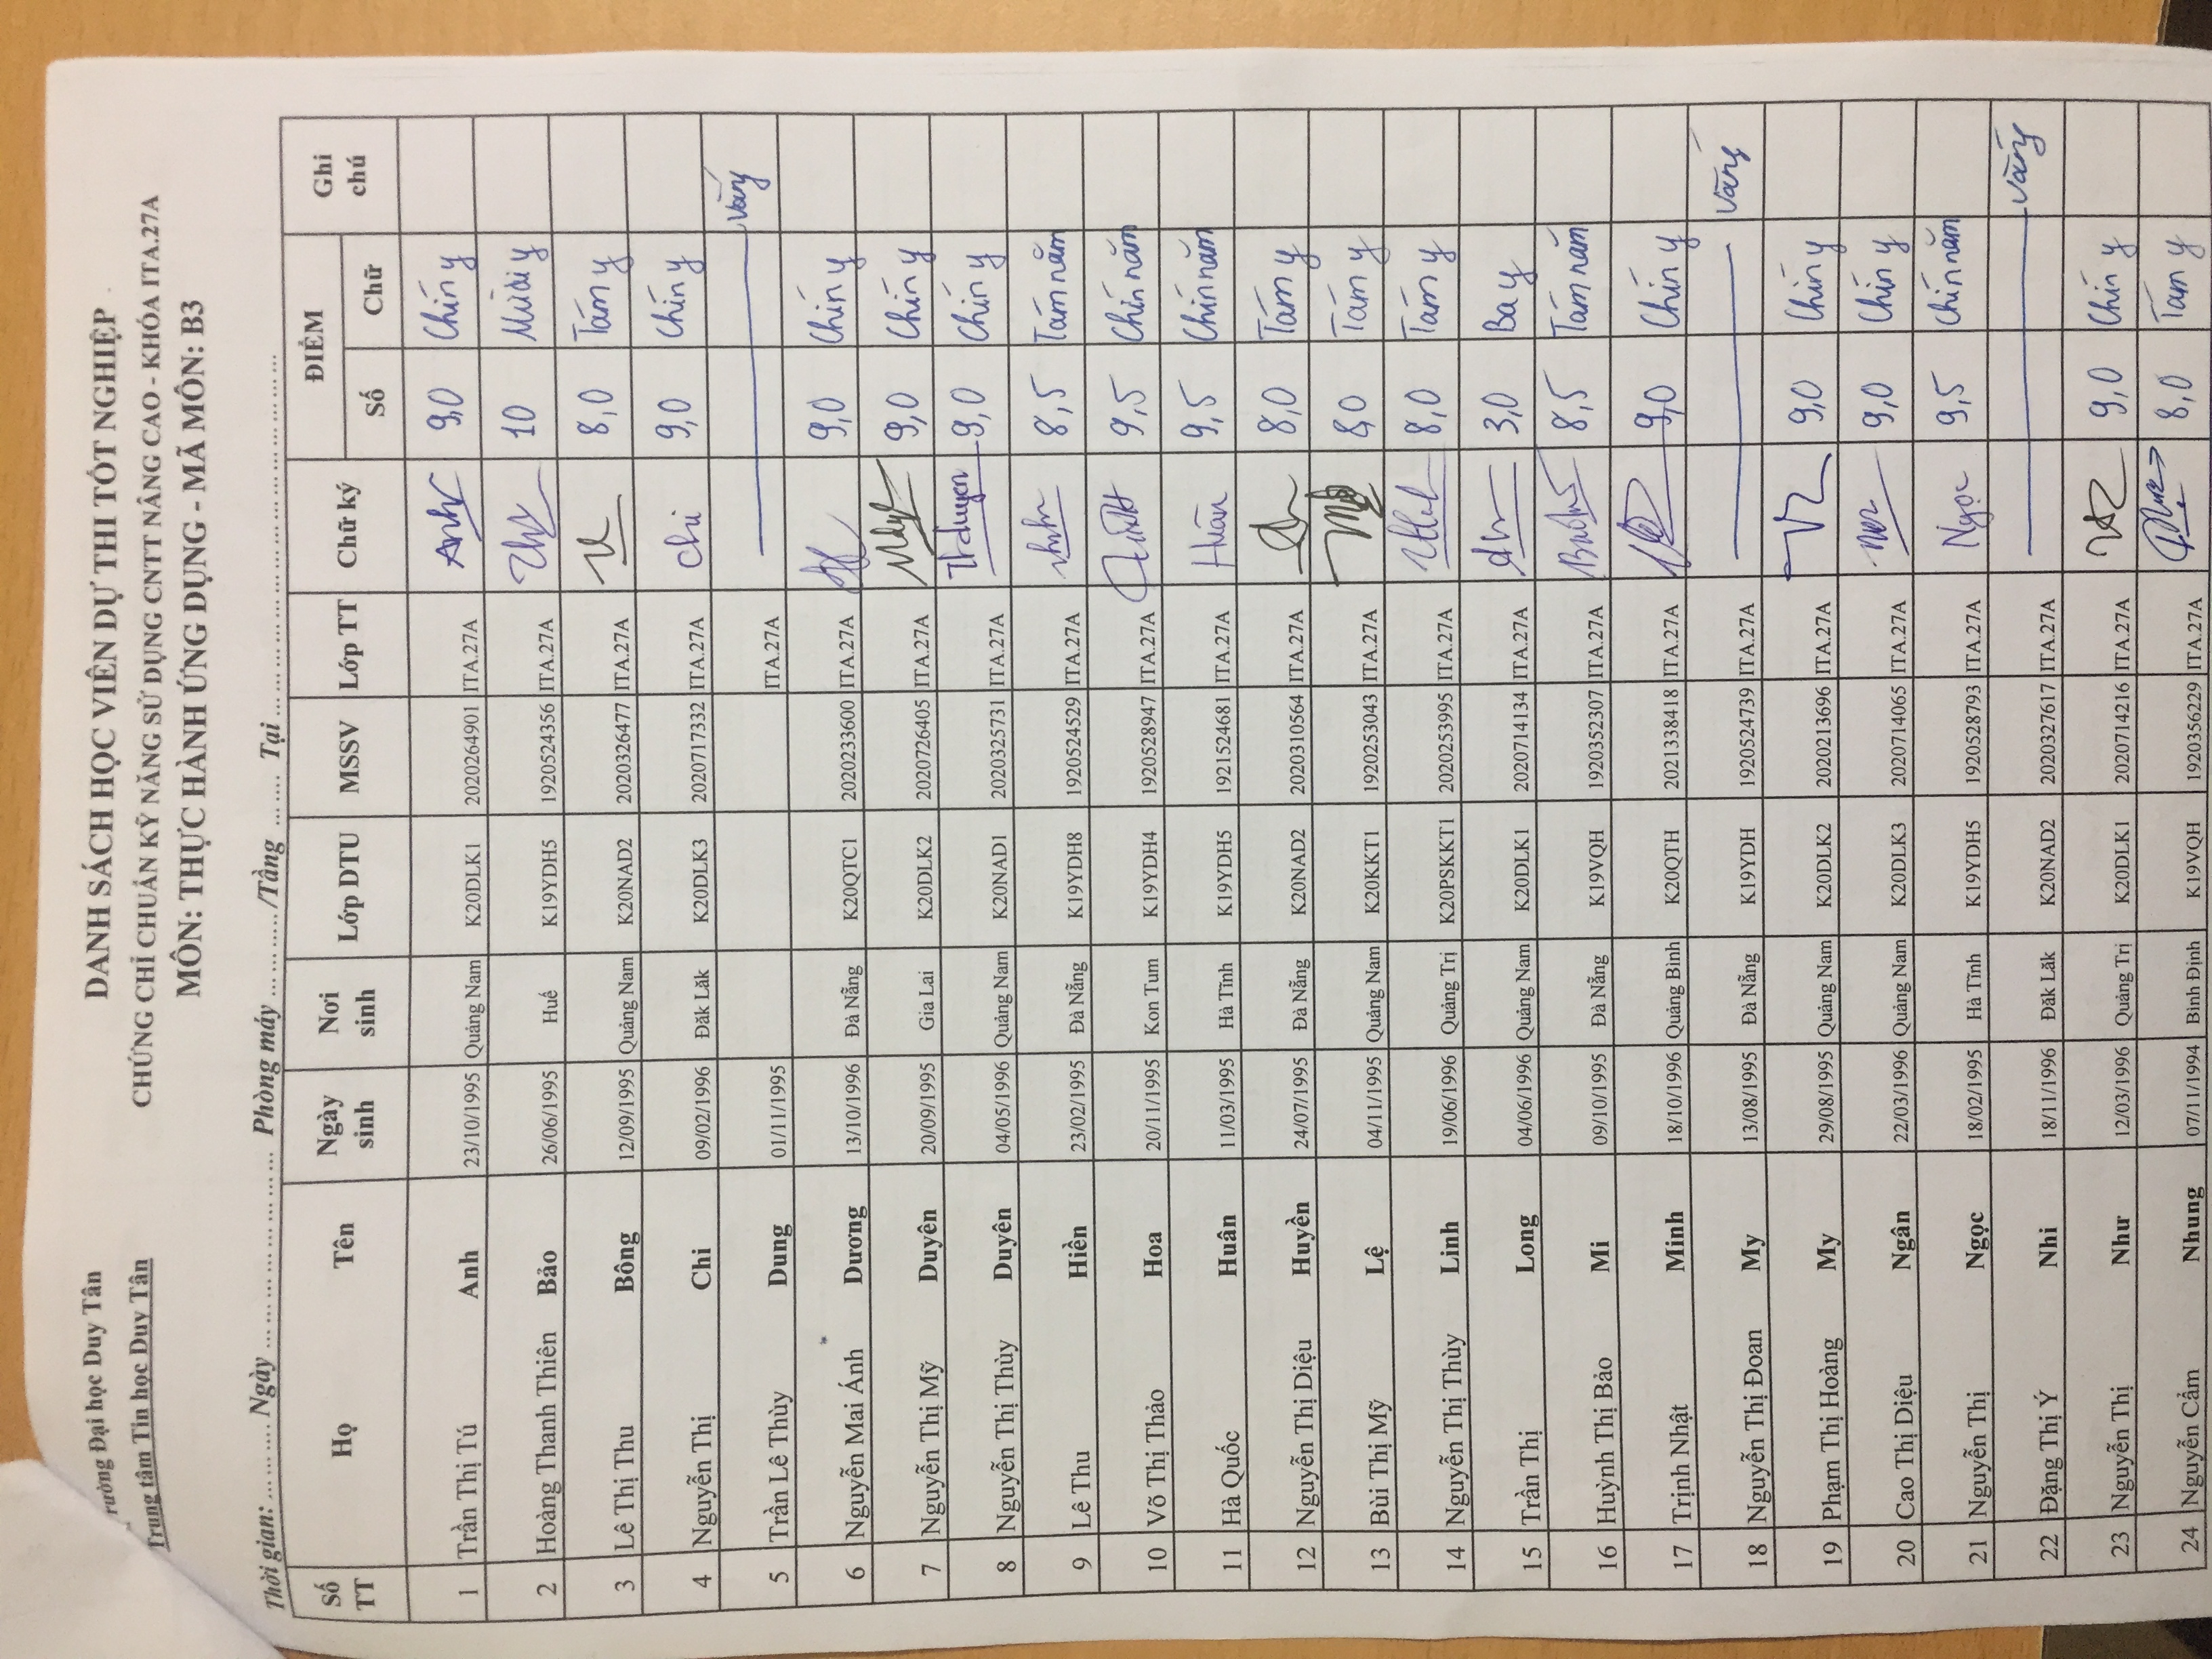 Trường Đại học Duy Tân
Trung tâm Tin học Duy Tân
DANH SÁCH HỌC VIÊN DỰ THI TỐT NGHIỆP
CHỨNG CHỈ CHUẨN KỸ NĂNG SỬ DỤNG CNTT NÂNG CAO - KHÓA ITA.27A
MÔN: THỰC HÀNH ỨNG DỤNG - MÃ MÔN: B3
Thời gian: ............ Ngày ........................ Phòng máy ............ /Tầng ....... Tại ........................
Số TT Họ Tên Ngày sinh Nơi sinh Lớp DTU MSSV Lớp TT Chữ ký ĐIỂM Ghi chú
Số Chữ
1 Trần Thị Tú Anh 23/10/1995 Quảng Nam K20DLK1 2020264901 ITA.27A Anh 9,0 Chín y
2 Hoàng Thanh Thiên Bảo 26/06/1995 Huế K19YDH5 1920524356 ITA.27A 10 Mười y
3 Lê Thị Thu Bông 12/09/1995 Quảng Nam K20NAD2 2020326477 ITA.27A 8,0 Tám y
4 Nguyễn Thị Chi 09/02/1996 Đăk Lăk K20DLK3 2020717332 ITA.27A Chi 9,0 Chín y
5 Trần Lê Thùy Dung 01/11/1995 ITA.27A Vắng
6 Nguyễn Mai Ánh Dương 13/10/1996 Đà Nẵng K20QTC1 2020233600 ITA.27A 9,0 Chín y
7 Nguyễn Thị Mỹ Duyên 20/09/1995 Gia Lai K20DLK2 2020726405 ITA.27A 9,0 Chín y
8 Nguyễn Thị Thùy Duyên 04/05/1996 Quảng Nam K20NAD1 2020325731 ITA.27A 9,0 Chín y
9 Lê Thu Hiền 23/02/1995 Đà Nẵng K19YDH8 1920524529 ITA.27A 8,5 Tám năm
10 Võ Thị Thảo Hoa 20/11/1995 Kon Tum K19YDH4 1920528947 ITA.27A 9,5 Chín năm
11 Hà Quốc Huân 11/03/1995 Hà Tĩnh K19YDH5 1921524681 ITA.27A Huân 9,5 Chín năm
12 Nguyễn Thị Diệu Huyền 24/07/1995 Đà Nẵng K20NAD2 2020310564 ITA.27A 8,0 Tám y
13 Bùi Thị Mỹ Lệ 04/11/1995 Quảng Nam K20KKT1 1920253043 ITA.27A 8,0 Tám y
14 Nguyễn Thị Thùy Linh 19/06/1996 Quảng Trị K20PSKKT1 2020253995 ITA.27A 8,0 Tám y
15 Trần Thị Long 04/06/1996 Quảng Nam K20DLK1 2020714134 ITA.27A 3,0 Ba y
16 Huỳnh Thị Bảo Mi 09/10/1995 Đà Nẵng K19VQH 1920352307 ITA.27A 8,5 Tám năm
17 Trịnh Nhật Minh 18/10/1996 Quảng Bình K20QTH 2021338418 ITA.27A 9,0 Chín y
18 Nguyễn Thị Đoan My 13/08/1995 Đà Nẵng K19YDH 1920524739 ITA.27A Vắng
19 Phạm Thị Hoàng My 29/08/1995 Quảng Nam K20DLK2 2020213696 ITA.27A 9,0 Chín y
20 Cao Thị Diệu Ngân 22/03/1996 Quảng Nam K20DLK3 2020714065 ITA.27A 9,0 Chín y
21 Nguyễn Thị Ngọc 18/02/1995 Hà Tĩnh K19YDH5 1920528793 ITA.27A Ngọc 9,5 Chín năm
22 Đặng Thị Ý Nhi 18/11/1996 Đăk Lăk K20NAD2 2020327617 ITA.27A Vắng
23 Nguyễn Thị Như 12/03/1996 Quảng Trị K20DLK1 2020714216 ITA.27A 9,0 Chín y
24 Nguyễn Cẩm Nhung 07/11/1994 Bình Định K19VQH 1920356229 ITA.27A 8,0 Tám y